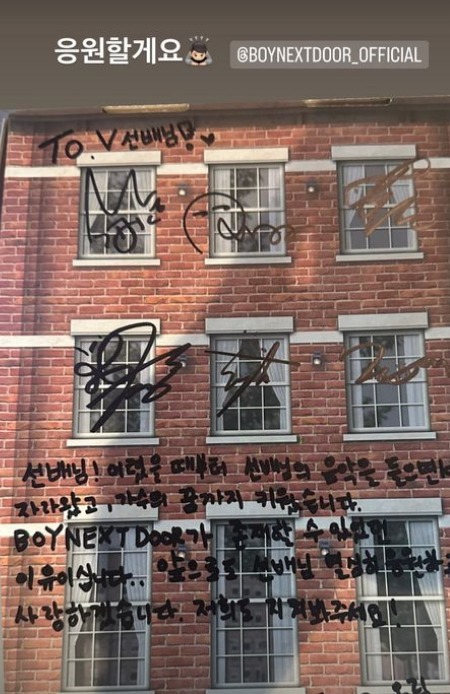 응원할게요🙇🏻
@BOYNEXTDOOR_OFFICIAL
To. V 선배님!! ♥
선배님! 어렸을 때부터 선배님의 음악을 들으면서
자라왔고, 가수의 꿈까지 키웠습니다.
BOYNEXTDOOR가 존재할 수 있었던
이유이십니다.. 앞으로도 선배님 열심히 응원하고
사랑하겠습니다. 저희도 지켜봐주세요!